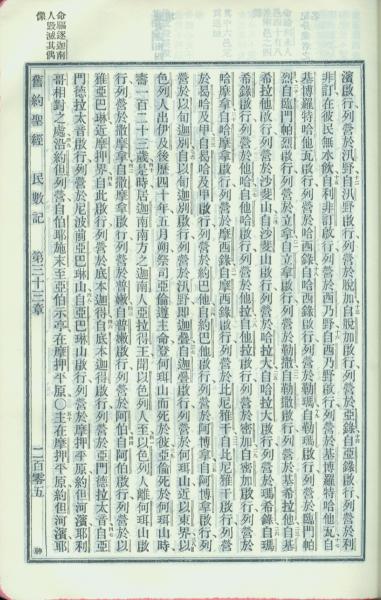 濱啟行列營於汛野自汛野啟行列營於脫加自脫加啟行列營於亞錄自亞錄啟行列營於利
非訂在彼民無水飲自利非訂啟行列營於西乃野自西乃野啟行列營於基博羅特哈他瓦自
基博羅特哈他瓦啟行列營於哈西錄自哈西錄啟行列營於勒瑪自勒瑪啟行列營於臨門帕
烈自臨門帕烈啟行列營於立拿自立拿啟行列營於勒撒自勒撒啟行列營於基希拉他自基
希拉他啟行列營於沙斐山自沙斐山啟行列營於哈拉大自哈拉大啟行列營於瑪希錄自瑪
希錄啟行列營於他哈自他哈啟行列營於他拉自他拉啟行列營於密加自密加啟行列營於
哈摩拿自哈摩拿啟行列營於摩西錄自摩西錄啟行列營於比尼雅干自比尼雅干啟行列營
於曷哈及甲自曷哈及甲啟行列營於約巴他自約巴他啟行列營於阿博拿自阿博拿啟行列
營於以旬迦別自以旬迦別啟行列營於汛野即迦疊自迦疊啟行列營於何珥山近以東界以
色列人出伊及後歷四十年五月朔祭司亞倫遵主命登何珥山而死於彼亞倫死於何珥山時
壽一百二十三歲是時居迦南南方之迦南人亞拉得王聞以色列人至以色列人離何珥山啟
行列營於撒摩拿自撒摩拿啟行列營於普嫩自普嫩啟行列營於阿伯自阿伯啟行列營於以
雅亞巴琳近摩押界自此啟行列營於底本迦得自底本迦得啟行列營於亞門德拉太音自亞
門德拉太音啟行列營於尼波前亞巴琳山自亞巴琳山啟行列營於摩押平原約但河濱耶利
哥相對之處沿約但列營自伯耶施末至亞伯示亭在摩押平原〇主在摩押平原約但河濱耶
命驅逐迦南
人毀滅其偶
像
舊約聖經 民數記 第三十三章 二百零五